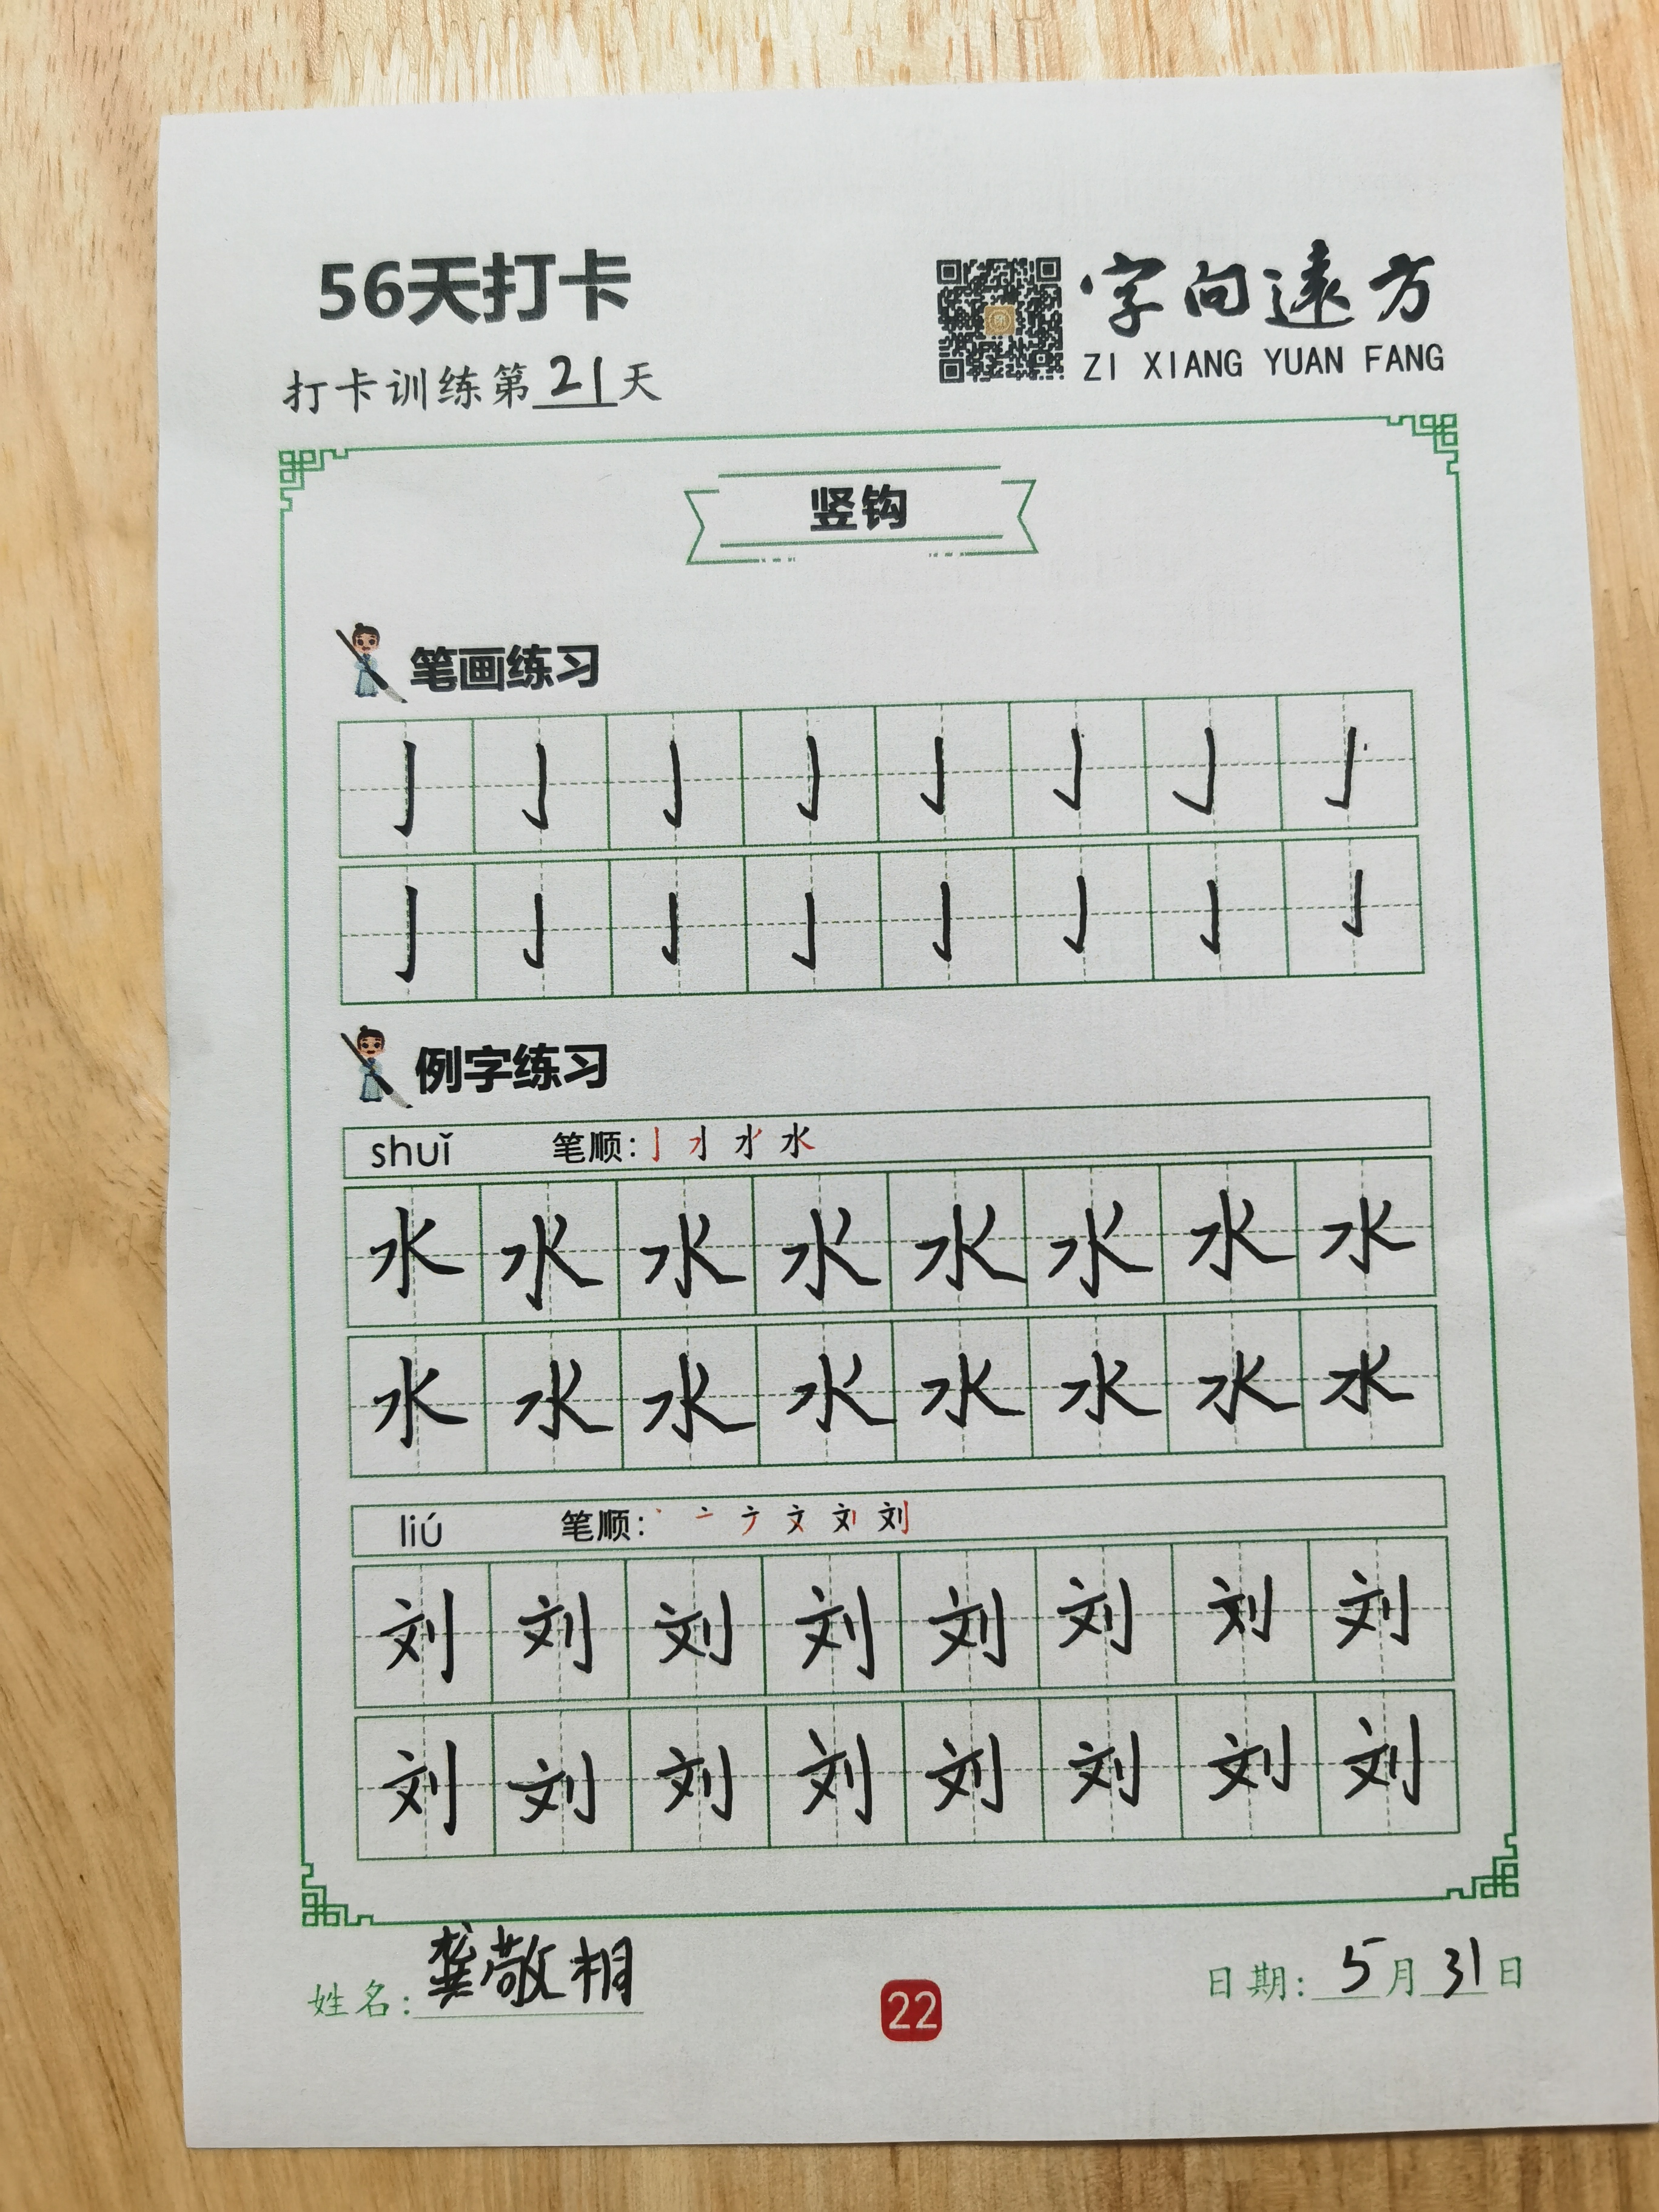 56天打卡
字向远方
ZI XIANG YUAN FANG
打卡训练第21天
竖钩
笔画练习
亅亅亅亅亅亅亅亅
亅亅亅亅亅亅亅亅
例字练习
shuǐ 笔顺:
水水水水水水水水
水水水水水水水水
liú 笔顺:
刘刘刘刘刘刘刘刘
刘刘刘刘刘刘刘刘
姓名:龚敬相
22
日期:5月31日